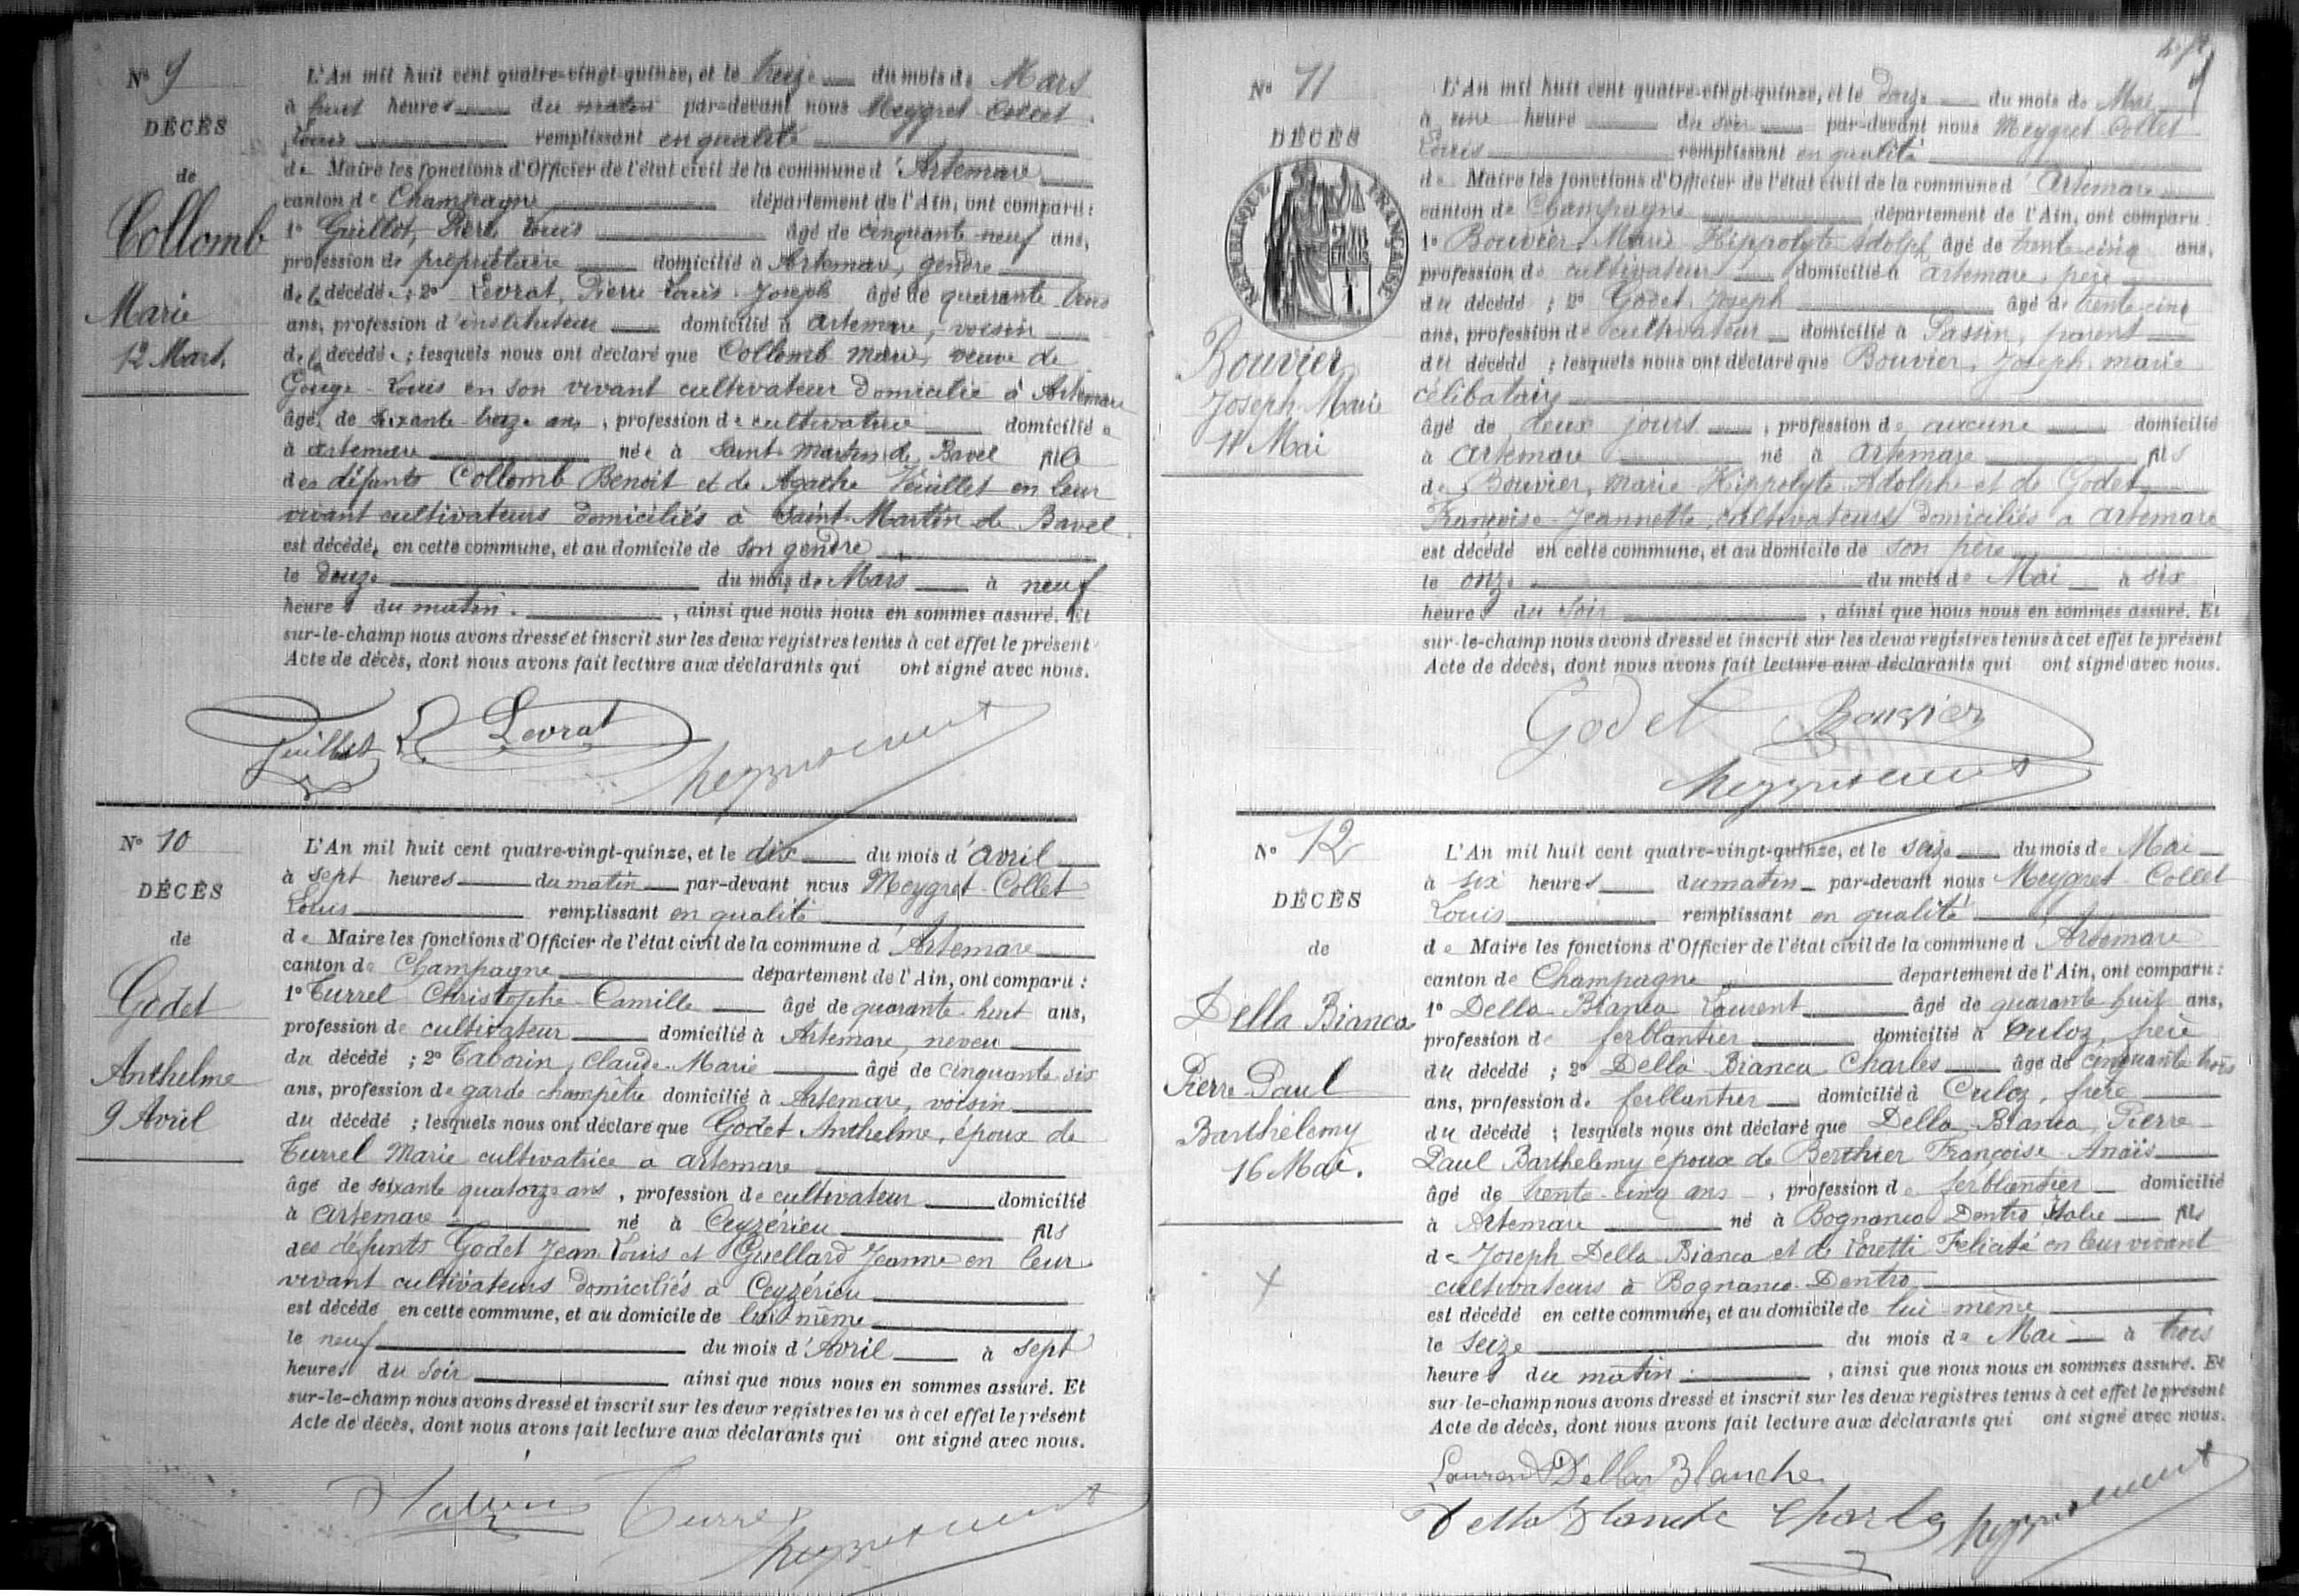 N° 9
DÉCÈS
de
Collomb
Marie
12 Mars.
L'An mil huit cent quatre-vingt-quinze, et le treize du mois de Mars
à huit heures du matin par-devant nous Meygret-Collet
Louis remplissant en qualité
de Maire les fonctions d'Officier de l'état civil de la commune d'Artemare
canton de Champagne département de l'Ain, ont comparu :
1° Guillot, Pierre Louis âgé de cinquante-neuf ans,
profession de propriétaire domicilié à Artemare, gendre
de la décédée ; 2° Levrat, Pierre Louis Joseph âgé de quarante trois
ans, profession d'instituteur domicilié à Artemare, voisin
de la décédée ; lesquels nous ont déclaré que Collomb Marie, veuve de
Gouge Louis en son vivant cultivateur domicilié à Artemare
âgée de soixante treize ans, profession de cultivatrice domiciliée
à Artemare née à Saint Martin de Bavel fille
des défunts Collomb Benoit et de Agathe Veuillet en leur
vivant cultivateurs domiciliés à Saint-Martin de Bavel
est décédée, en cette commune, et au domicile de son gendre
le douze du mois de Mars à neuf
heures du matin. , ainsi que nous nous en sommes assuré. Et
sur-le-champ nous avons dressé et inscrit sur les deux registres tenus à cet effet le présent
Acte de décès, dont nous avons fait lecture aux déclarants qui ont signé avec nous.
Guillot Levrat
N° 10
DÉCÈS
de
Godet
Anthelme
9 Avril
L'An mil huit cent quatre-vingt-quinze, et le dix du mois d'Avril
à sept heures du matin par-devant nous Meygret-Collet
Louis remplissant en qualité
de Maire les fonctions d'Officier de l'état civil de la commune d'Artemare
canton de Champagne département de l'Ain, ont comparu :
1° Turrel Christophe Camille âgé de quarante-huit ans,
profession de cultivateur domicilié à Artemare, neveu
du décédé ; 2° Taborin, Claude-Marie âgé de cinquante-six
ans, profession de garde champêtre domicilié à Artemare, voisin
du décédé ; lesquels nous ont déclaré que Godet Anthelme, époux de
Turrel Marie cultivatrice à Artemare
âgé de soixante quatorze ans, profession de cultivateur domicilié
à Artemare né à Ceyzérieu fils
des défunts Godet Jean Louis et Guellard Jeanne en leur
vivant cultivateurs domiciliés à Ceyzérieu
est décédé en cette commune, et au domicile de lui-même
le neuf du mois d'Avril à sept
heures du soir ainsi que nous nous en sommes assuré. Et
sur-le-champ nous avons dressé et inscrit sur les deux registres tenus à cet effet le présent
Acte de décès, dont nous avons fait lecture aux déclarants qui ont signé avec nous.
Turrel
N° 11
DÉCÈS
RÉPUBLIQUE FRANÇAISE
Bouvier
Joseph-Marie
11 Mai
L'An mil huit cent quatre-vingt-quinze, et le douze du mois de Mai
à une heure du soir par-devant nous Meygret Collet
Louis remplissant en qualité
de Maire les fonctions d'Officier de l'état civil de la commune d'Artemare
canton de Champagne département de l'Ain, ont comparu :
1° Bouvier, Marie Hippolyte Adolph. âgé de trente-cinq ans,
profession de cultivateur domicilié à Artemare, père
du décédé ; 2° Godet, Joseph âgé de trente-cinq
ans, profession de cultivateur domicilié à Passin, parent
du décédé ; lesquels nous ont déclaré que Bouvier, Joseph-Marie
célibataire
âgé de deux jours, profession de aucune domicilié
à Artemare né à Artemare fils
de Bouvier, Marie Hippolyte Adolphe et de Godet
Françoise-Jeannette, cultivateurs domiciliés à Artemare
est décédé en cette commune, et au domicile de son père
le onze du mois de Mai à six
heures du soir , ainsi que nous nous en sommes assuré. Et
sur-le-champ nous avons dressé et inscrit sur les deux registres tenus à cet effet le présent
Acte de décès, dont nous avons fait lecture aux déclarants qui ont signé avec nous.
Godet Bouvier
N° 12
DÉCÈS
de
Della Bianca
Pierre Paul
Barthélemy
16 Mai.
L'An mil huit cent quatre-vingt-quinze, et le seize du mois de Mai
à six heures du matin par-devant nous Meygret-Collet
Louis remplissant en qualité
de Maire les fonctions d'Officier de l'état civil de la commune d'Artemare
canton de Champagne département de l'Ain, ont comparu :
1° Della-Bianca Laurent âgé de quarante huit ans,
profession de ferblantier domicilié à Culoz, frère
du décédé ; 2° Della Bianca Charles âgé de cinquante trois
ans, profession de ferblantier domicilié à Culoz, frère
du décédé ; lesquels nous ont déclaré que Della-Bianca, Pierre
Paul Barthélemy époux de Berthier Françoise-Anaïs
âgé de trente-cinq ans, profession de ferblantier domicilié
à Artemare né à Bognanco Dentro Italie fils
de Joseph Della-Bianca et de Loretti Félicité en leur vivant
cultivateurs à Bognanco-Dentro
est décédé en cette commune, et au domicile de lui-même
le seize du mois de Mai à trois
heures du matin , ainsi que nous nous en sommes assuré. Et
sur-le-champ nous avons dressé et inscrit sur les deux registres tenus à cet effet le présent
Acte de décès, dont nous avons fait lecture aux déclarants qui ont signé avec nous.
Laurend Della Blanche
Della Blanche Charles